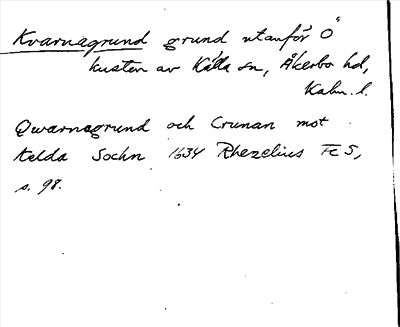 Kvarnagrund grund utanför Ö
kusten av Källa sn, Åkerbo hd,
Kalm. l.
Qwarnagrund och Crunan mot
Kelda Sochn 1634 Rhezelius Fc 5,
s. 98.